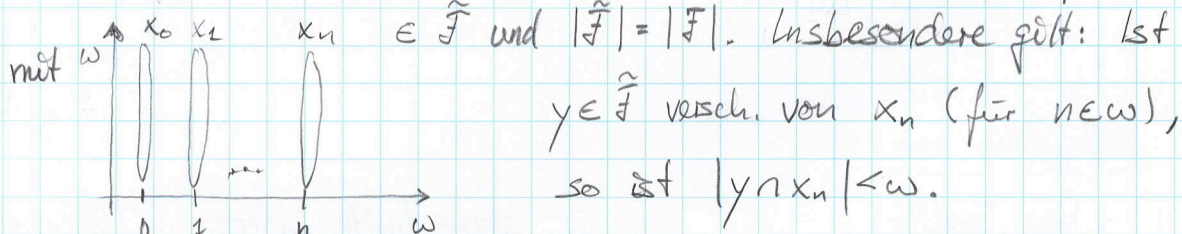 mit ω x₀ x₁ xₙ ∈ F̃ und |F̃| = |F|. Insbesondere gilt: Ist
y ∈ F̃ versch. von xₙ (für n∈ω),
... so ist |y∩xₙ| < ω.
0 1 n ω